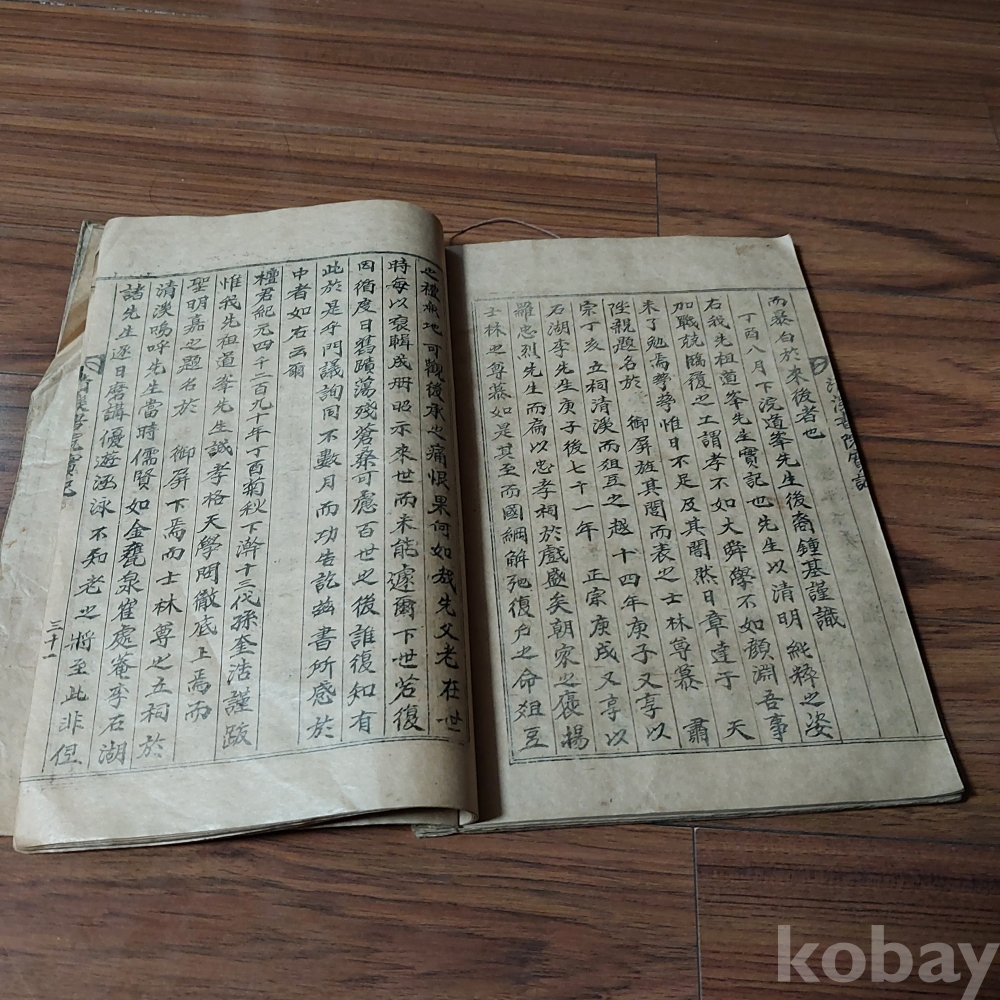 而暴白於來後者也
丁酉八月下浣道峯先生後裔鍾基謹識
右我先祖道峯先生實記也先生以清明純粹之姿
加戰兢臨復之工謂孝不如大舜學不如顏淵吾事
未了勉焉孳孳惟日不足及其闇然日章達于 天
陛親題名於 御屏旌其閭而表之士林尊慕 肅
宗丁亥立祠清溪而俎豆之越十四年庚子又享以
石湖李先生庚子後七十一年 正宗庚戌又享以
羅忠烈先生而扁以忠孝祠於戲盛矣朝家之褒揚
士林之尊慕如是其至而國綱解弛復戶之命俎豆
也種 地可觀後承之痛恨果何如哉先父老在世
時每以裒輯成册昭示來世而未能遽爾下世若復
因循度日舊蹟蕩殘蒼桑可慮百世之後誰復知有
此於是乎門議詢同不數月而功告訖玆書所感於
中者如右云爾
檀君紀元四千二百九十年丁酉菊秋下澣十三代孫奎浩謹跋
惟我先祖道峯先生誠孝格天學問徹底上焉而
聖明嘉之題名於 御屏下焉而士林尊之立祠於
清溪嗚呼先生當時儒賢如金甕泉崔處菴李石湖
諸先生逐日磨講優遊涵泳不知老之將至此非但
三十一
kobay